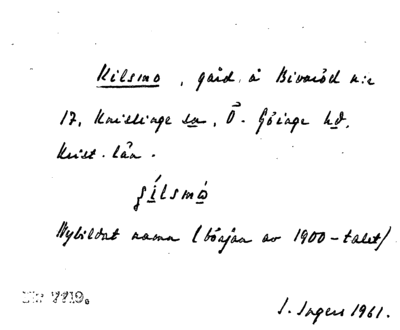 Kilsmo, gård å Bivaröd nr
17, Knislinge sn, Ö. Göinge hd,
Krist. län.
Nybildat namn (början av 1900-talet)
I. Ingers 1961.